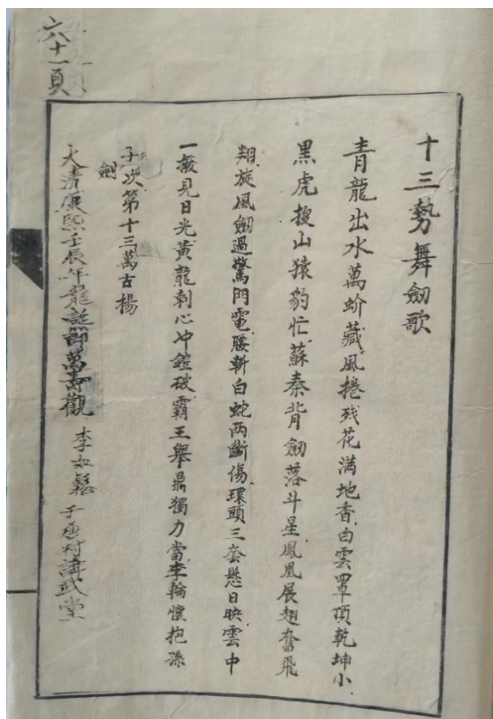 六十一頁
十三勢舞劒歌
青龍出水萬蚧藏風捲残花满地香白雲罩頂乾坤小
黑虎搜山猿豹忙蘇秦背劒落斗星鳳凰展翅奮飛
翔旋風劒過驚閃電腰斬白蛇两斷傷環頭三套懸日映雲中
一撥見日光黄龍刺心冲鎧破霸王舉鼎獨力當李輪懷抱孫
子次第十三萬古揚
劍
大清康熙壬辰年龍誕節萬壽觀 李如鬆 千唐村講武堂